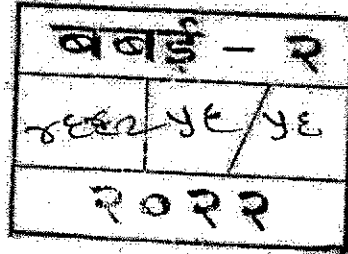 बबई - २
४६६२ ५६/५६
२०२२